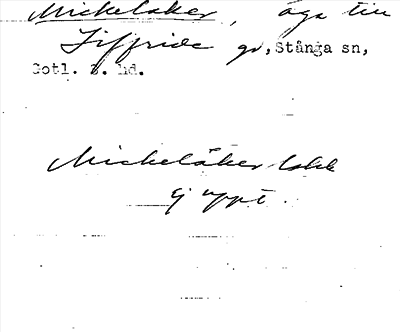 Mickelåker, äga till
Siffride gd, Stånga sn,
Gotl. S. hd.
Mickelåker lokk
ej uppt.